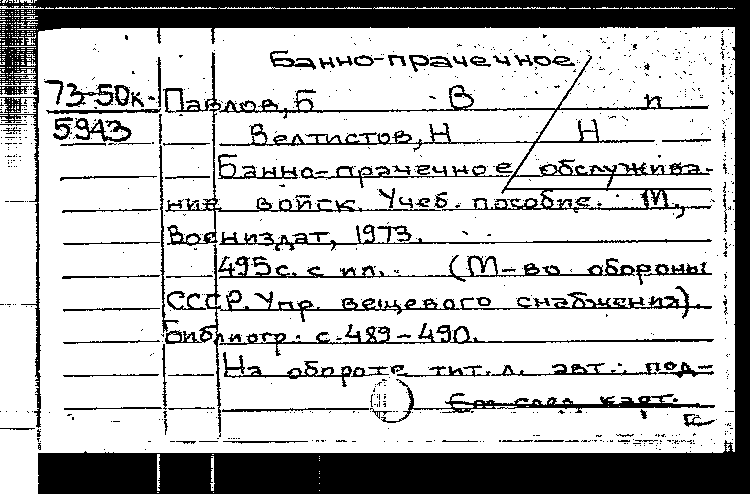 Банно-прачечное
73-50к Павлов, Б В п
5943 Велтистов, Н Н
Банно-прачечное обслужива-
ние войск. Учеб. пособие. М.,
Воениздат, 1973.
495 с. с ил. (М-во обороны
СССР. Упр. вещевого снабжения).
Библиогр.: с. 489-490.
На обороте тит. л. авт.: под-
См след карт.